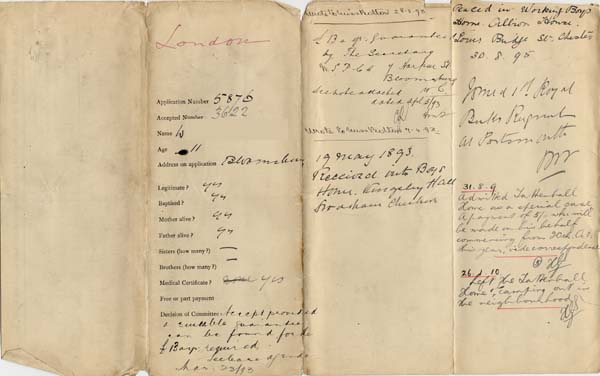 London
Application Number 5876
Accepted Number 3622
Name W
Age 11
Address on application Bloomsbury
Legitimate? yes
Baptised? yes
Mother alive? yes
Father alive? yes
Sisters (how many?) —
Brothers (how many?) —
Medical Certificate? yes
Free or part payment
Decision of Committee: Accept provided
a suitable guarantee
can be found for the
£ Bays required.
Mar. 23/93
Wrote to Miss Rutter
by The Secretary
7 Harpur St
Bloomsbury
W.C.
See note attached
dated Apl 5/93
Wrote to Miss Rutter
19 May 1893.
Received into Boys
Home, Kingsley Hall
Frodsham Cheshire
Placed in Working Boys
Home. Allison House.
Louis Bridge St. Chester
30. 8. 95
Joined 1st Royal
Berks Regiment
at Portsmouth
31. 8. 9
Admitted Tattenhall
Home as a special case
A payment of 5/- will
be made on his behalf
commencing from 20th Oct
this year, vide correspondence
26. 10
Left the Tattenhall
Home, camping out in
the neighbourhood